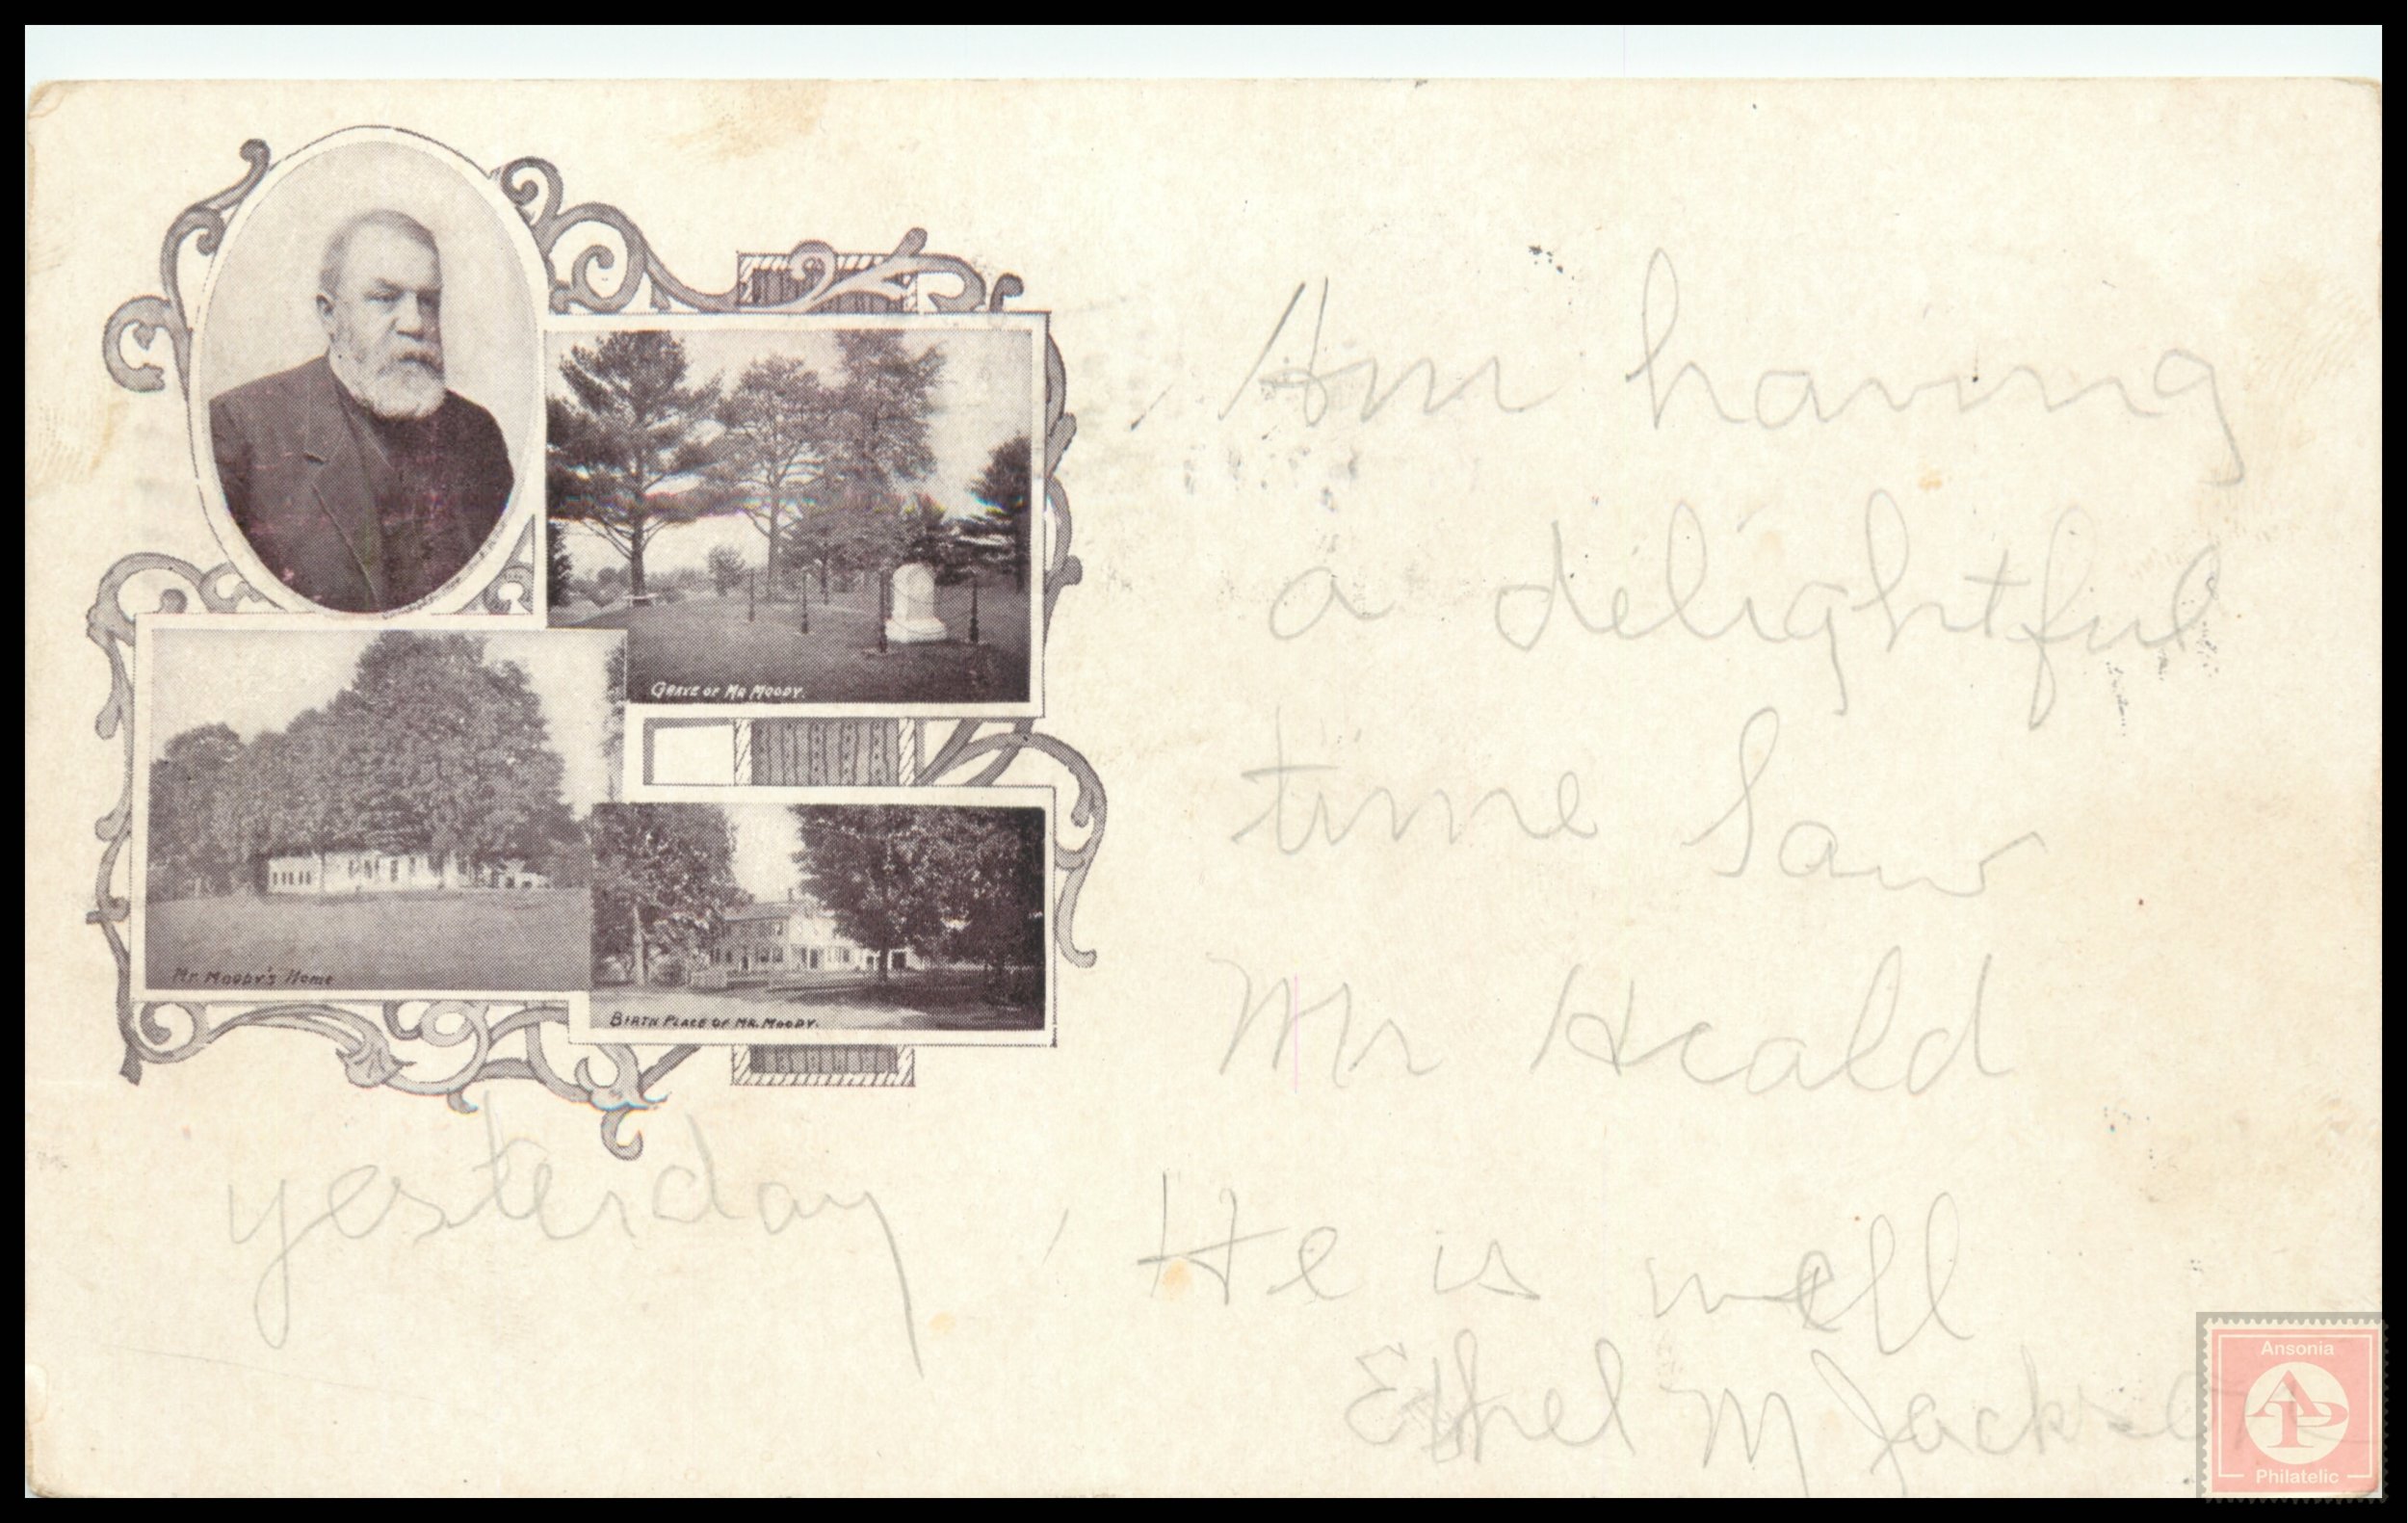 GRAVE OF MR MOODY.
MR. MOODY'S HOME
BIRTH PLACE OF MR. MOODY.
Am having
a delightful
time Saw
Mr Heald
yesterday, He is well
Ethel M Jackson
Ansonia
AP
Philatelic